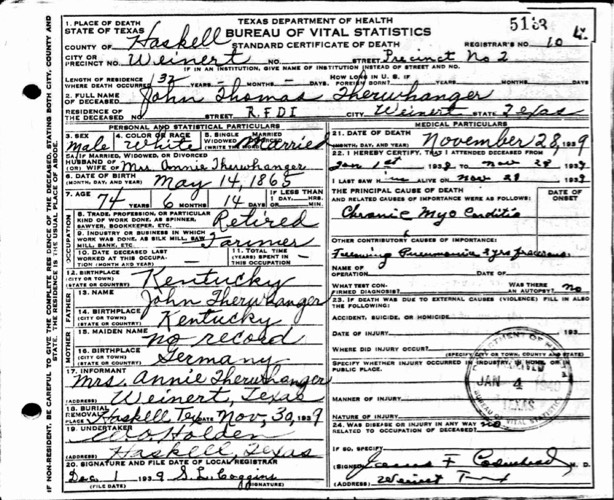 TEXAS DEPARTMENT OF HEALTH
BUREAU OF VITAL STATISTICS
STANDARD CERTIFICATE OF DEATH
5133
REGISTRAR'S NO. 10
1. PLACE OF DEATH
STATE OF TEXAS
COUNTY OF Haskell
CITY OR PRECINCT NO. Weinert NO. STREET Precinct No 2
IF IN AN INSTITUTION, GIVE NAME OF INSTITUTION INSTEAD OF STREET AND NO.
LENGTH OF RESIDENCE WHERE DEATH OCCURRED 32 YEARS MONTHS DAYS. HOW LONG IN U. S. IF FOREIGN BORN? YEARS MONTHS DAYS
2. FULL NAME OF DECEASED John Thomas Therwhanger
RESIDENCE OF THE DECEASED STREET R.F.D 1 CITY Weinert STATE Texas
PERSONAL AND STATISTICAL PARTICULARS
3. SEX Male
4. COLOR OR RACE White
5. SINGLE MARRIED WIDOWED (WRITE THE WORD) Married
5A. IF MARRIED, WIDOWED, OR DIVORCED
HUSBAND OF (OR) WIFE OF Mrs. Annie Therwhanger
6. DATE OF BIRTH (MONTH, DAY, AND YEAR) May 14, 1865
7. AGE 74 YEARS 6 MONTHS 14 DAYS IF LESS THAN 1 DAY HRS. MIN.
OCCUPATION
8. TRADE, PROFESSION, OR PARTICULAR KIND OF WORK DONE, AS SPINNER, SAWYER, BOOKKEEPER, ETC. Retired
9. INDUSTRY OR BUSINESS IN WHICH WORK WAS DONE, AS SILK MILL, SAW MILL, BANK, ETC. Farmer
10. DATE DECEASED LAST WORKED AT THIS OCCUPATION (MONTH AND YEAR)
11. TOTAL TIME (YEARS) SPENT IN THIS OCCUPATION
12. BIRTHPLACE (CITY OR TOWN) (STATE OR COUNTRY) Kentucky
FATHER
13. NAME John Therwhanger
14. BIRTHPLACE (CITY OR TOWN) (STATE OR COUNTRY) Kentucky
MOTHER
15. MAIDEN NAME no record
16. BIRTHPLACE (CITY OR TOWN) (STATE OR COUNTRY) Germany
17. INFORMANT Mrs. Annie Therwhanger
(ADDRESS) Weinert, Texas
18. BURIAL REMOVAL
PLACE Haskell, Tex DATE Nov, 30, 1939
19. UNDERTAKER Holden
(ADDRESS) Haskell, Texas
20. SIGNATURE AND FILE DATE OF LOCAL REGISTRAR
Dec 1 1939 S. L. Coggins
(FILE DATE) (SIGNATURE)
MEDICAL PARTICULARS
21. DATE OF DEATH (MONTH, DAY, AND YEAR) November 28, 1939
22. I HEREBY CERTIFY, THAT I ATTENDED DECEASED FROM
Jan 1st 1939 TO Nov 28 1939
I LAST SAW him ALIVE ON Nov 28 1939
THE PRINCIPAL CAUSE OF DEATH AND RELATED CAUSES OF IMPORTANCE WERE AS FOLLOWS:
DATE OF ONSET
Chronic Myo Carditis
OTHER CONTRIBUTORY CAUSES OF IMPORTANCE:
Following Pneumonia
NAME OF OPERATION DATE OF
WHAT TEST CONFIRMED DIAGNOSIS? WAS THERE AN AUTOPSY? no
23. IF DEATH WAS DUE TO EXTERNAL CAUSES (VIOLENCE) FILL IN ALSO THE FOLLOWING:
ACCIDENT, SUICIDE, OR HOMICIDE
DATE OF INJURY 193
WHERE DID INJURY OCCUR?
(SPECIFY CITY OR TOWN, COUNTY, AND STATE)
SPECIFY WHETHER INJURY OCCURRED IN INDUSTRY, IN HOME, OR IN PUBLIC PLACE.
MANNER OF INJURY
NATURE OF INJURY
24. WAS DISEASE OR INJURY IN ANY WAY RELATED TO OCCUPATION OF DECEASED? no
IF SO, SPECIFY
(SIGNED) M. D.
(ADDRESS) Weinert
JAN 4
BUREAU OF VITAL STATISTICS
TEXAS